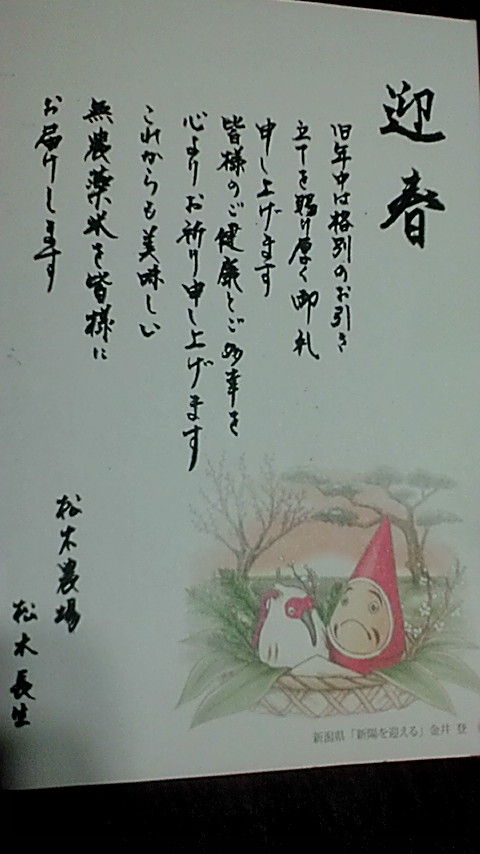 迎春
旧年中は格別のお引き
立てを賜り厚く御礼
申し上げます
皆様のご健康とご多幸を
心よりお祈り申し上げます
これからも美味しい
無農薬米を皆様に
お届けします
松木農場
松木長生
新潟県「新陽を迎える」金井 登